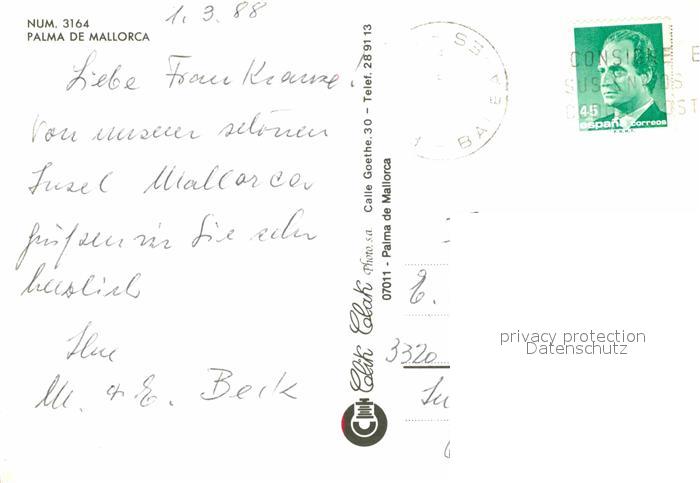 1.3.88
NUM. 3164
PALMA DE MALLORCA
Liebe Frau Krause!
Von unserer schönen
Insel Mallorca
grüßen wir Sie sehr
herzlich
Ihre
M. + E. Beck
Clik Clak Photo, s.a. Calle Goethe, 30 – Telef. 28 91 13
07011 - Palma de Mallorca
BALE
CONSIGNE E
SUS
45
españa correos
E.
3320
privacy protection
Datenschutz